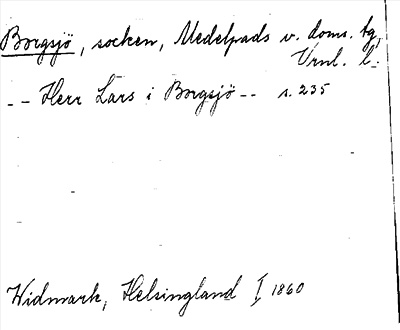 Borgsjö, socken, Medelpads v. doms. tg,
Vrnl. l.
-- Herr Lars i Borgsjö -- s. 235
Widmark, Helsingland I, 1860